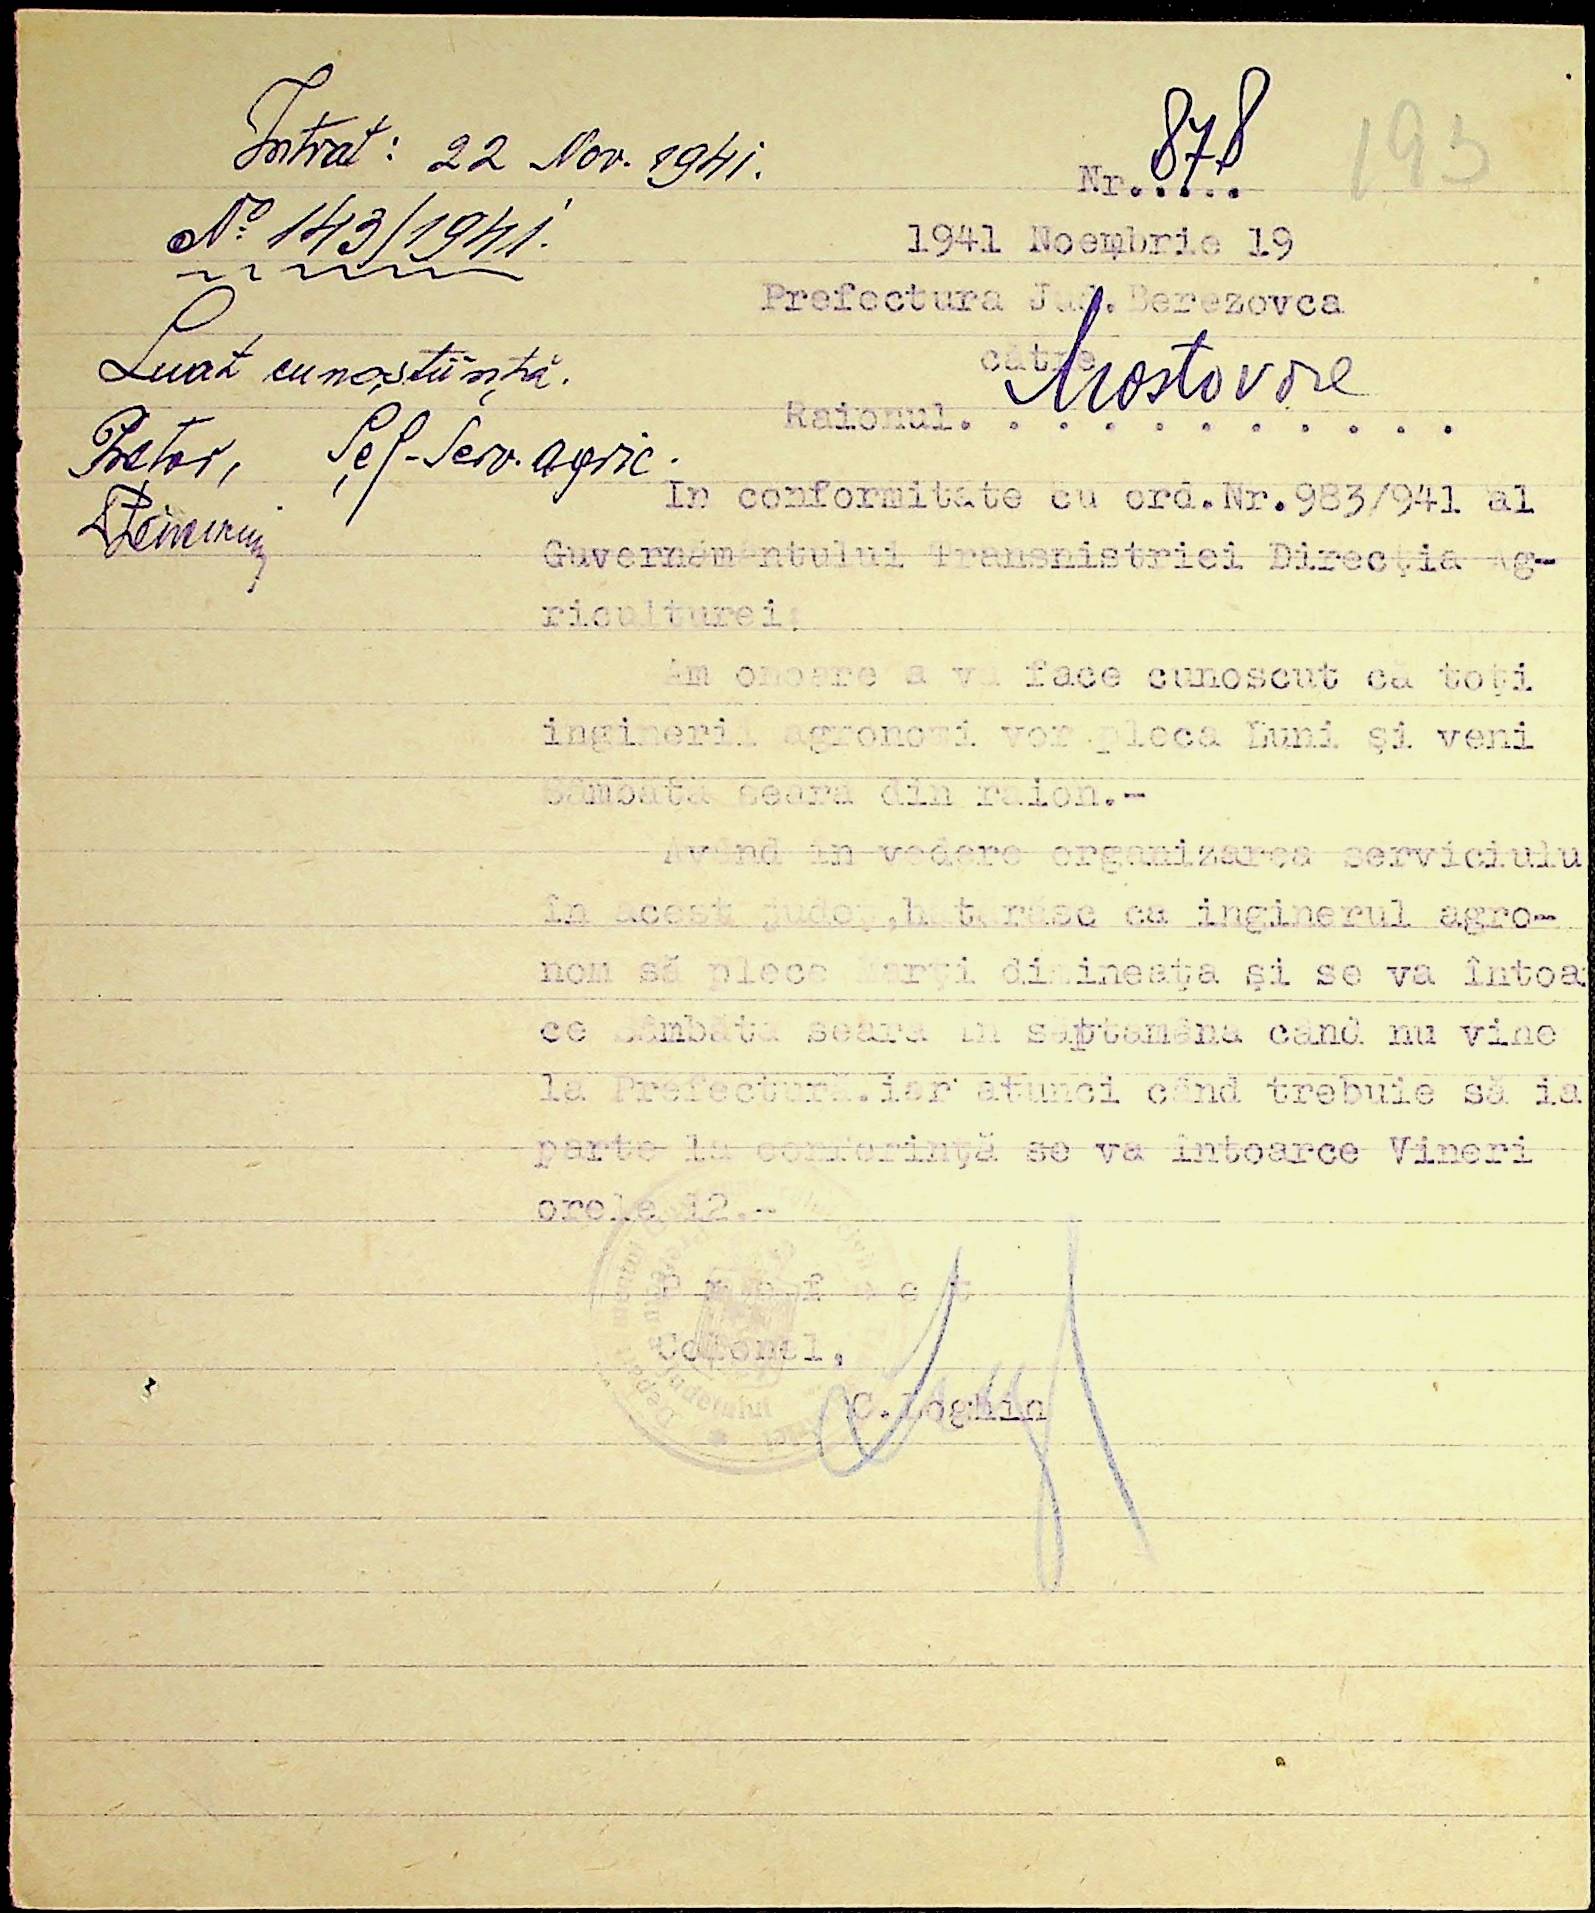 Intrat: 22 Nov. 1941.
Nº 143/1941.
Luat cunoștiință.
Pretor, Șef-Serv. agric.
193
Nr. 878
1941 Noembrie 19
Prefectura Jud. Berezovca
către
Raionul. Mostovoie
In conformitate cu ord.Nr.983/941 al
Guvernământului Transnistriei Direcția Ag-
riculturei;
Am onoare a vă face cunoscut că toți
inginerii agronomi vor pleca Luni și veni
Sâmbătă seara din raion.-
Având în vedere organizarea serviciulu
în acest județ, hotărăsc ca inginerul agro-
nom să plece Marți dimineața și se va întoa
ce Sâmbăta seara în săptămâna când nu vine
la Prefectură.iar atunci când trebuie să ia
parte la conferință se va întoarce Vineri
orele 12.-
P r e f e c t
Colonel,
C. Loghin
Județului